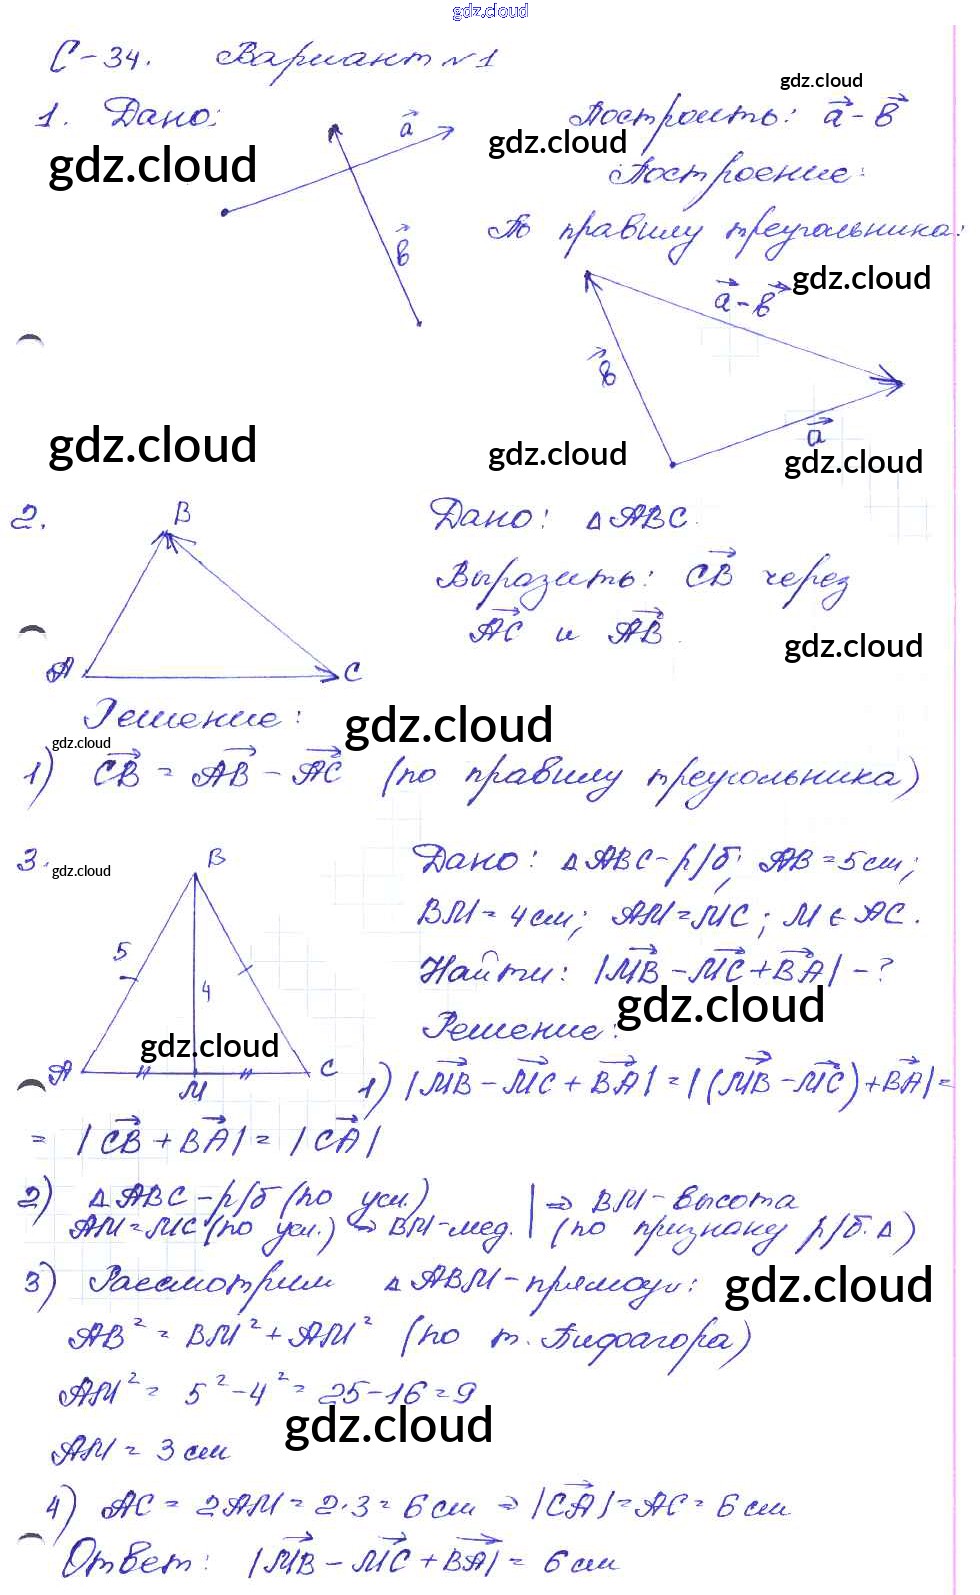 gdz.cloud
С-34. Вариант №1
gdz.cloud
1. Дано: a⃗ Построить: a⃗ - b⃗
gdz.cloud gdz.cloud
Построение:
b⃗ По правилу треугольника:
gdz.cloud
a⃗ - b⃗
b⃗
a⃗
gdz.cloud gdz.cloud gdz.cloud
2. B Дано: △ABC.
Выразить: CB⃗ через
AC⃗ и AB⃗.
gdz.cloud
A C
Решение: gdz.cloud
gdz.cloud
1) CB⃗ = AB⃗ - AC⃗ (по правилу треугольника)
3. B Дано: △ABC - р/б; AB = 5см;
gdz.cloud
BM = 4см; AM = MC; M ∈ AC.
5 Найти: |MB⃗ - MC⃗ + BA⃗| - ?
4 gdz.cloud
Решение:
gdz.cloud
A M C
1) |MB⃗ - MC⃗ + BA⃗| = |(MB⃗ - MC⃗) + BA⃗| =
= |CB⃗ + BA⃗| = |CA⃗|
2) △ABC - р/б (по усл.) | ⇒ BM - высота
AM = MC (по усл.) ⇒ BM - мед. | (по признаку р/б. △)
3) Рассмотрим △ABM - прямоуг: gdz.cloud
AB² = BM² + AM² (по т. Пифагора)
AM² = 5² - 4² = 25 - 16 = 9
gdz.cloud
AM = 3 см
4) AC = 2AM = 2·3 = 6 см ⇒ |CA⃗| = AC = 6 см
Ответ: |MB⃗ - MC⃗ + BA⃗| = 6 см